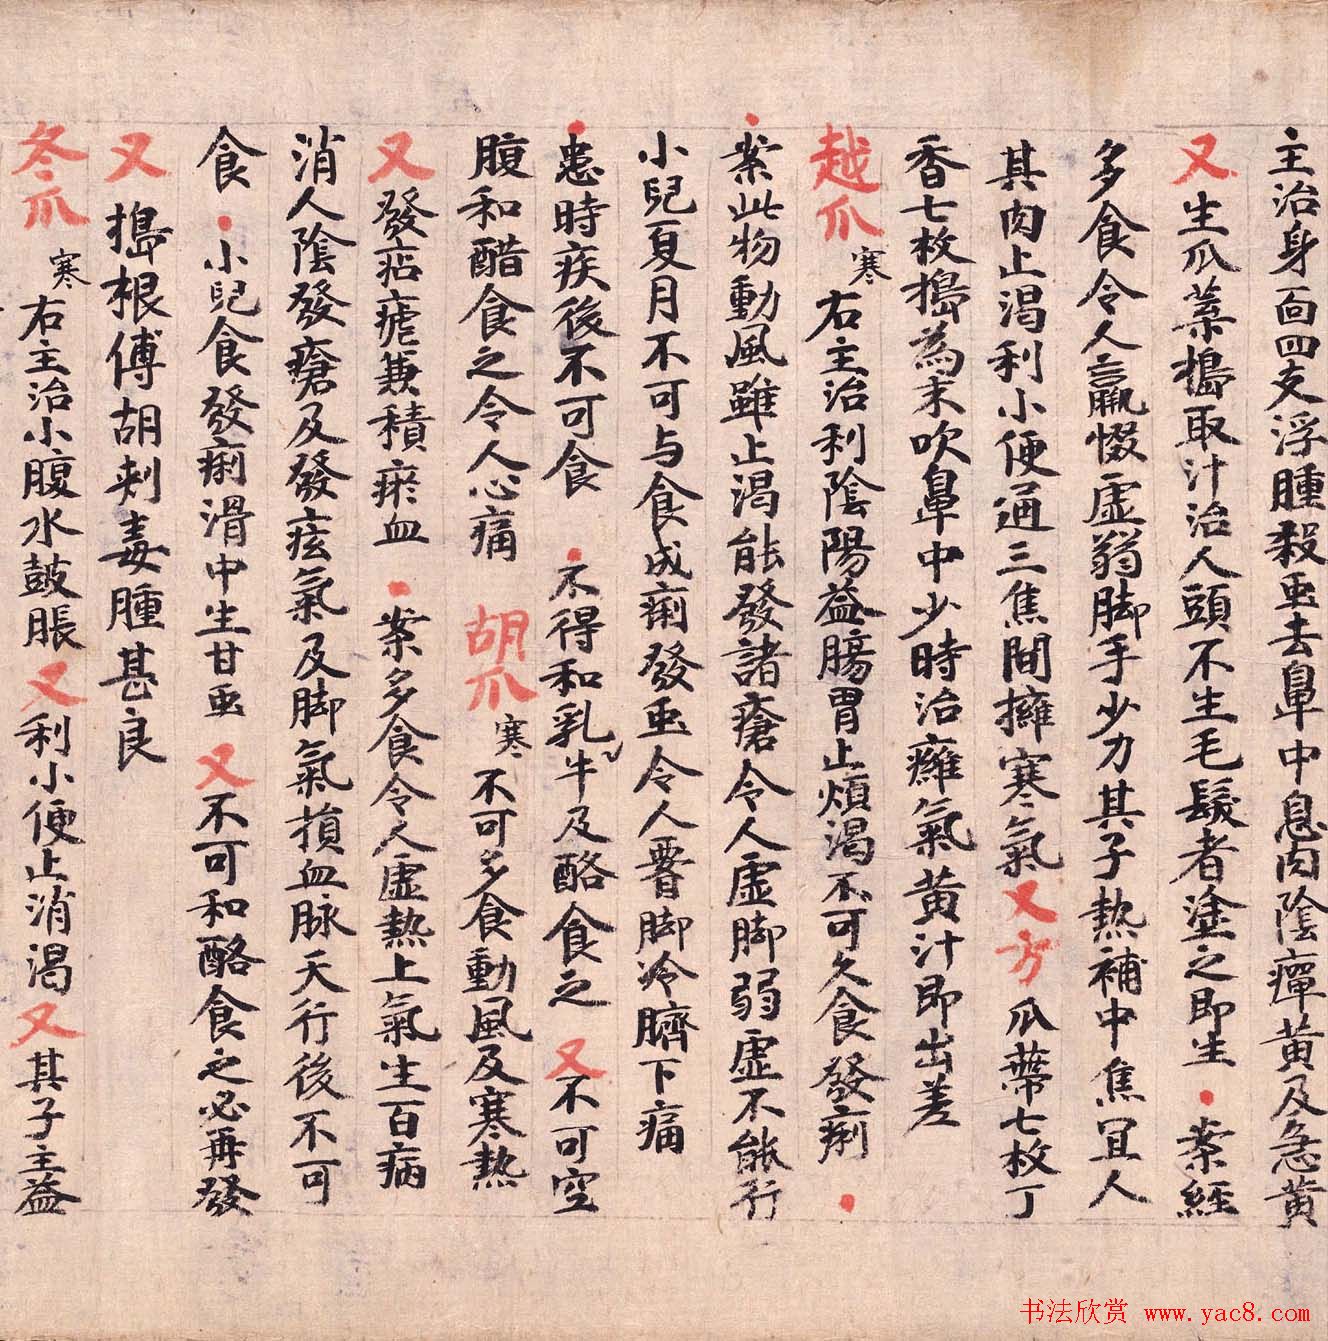 主治身面四支浮腫殺虫去鼻中息肉陰癉黄及急黄
又生瓜葉搗取汁治人頭不生毛髮者塗之即生·案經
多食令人羸惙虚弱脚手少力其子熱補中焦宜人
其肉止渴利小便通三焦間擁寒氣又方瓜蔕七枚丁
香七枚搗為末吹鼻中少時治癰氣黄汁即出差
越瓜寒右主治利陰陽益腸胃止煩渴不可久食發痢·
·案此物動風雖止渴能發諸瘡令人虚脚弱虚不能行
小兒夏月不可与食成痢發虫令人脚冷臍下痛
·患時疾後不可食·不得和乳牛及酪食之又不可空
腹和醋食之令人心痛胡瓜寒不可多食動風及寒熱
又發痁瘧兼積瘀血·案多食令人虚熱上氣生百病
消人陰發瘡及發痃氣及脚氣損血脉天行後不可
食·小兒食發痢滑中生甘虫又不可和酪食之必再發
又搗根傅胡刺毒腫甚良
冬瓜寒右主治小腹水鼓脹又利小便止消渴又其子主益
书法欣赏 www.yac8.com